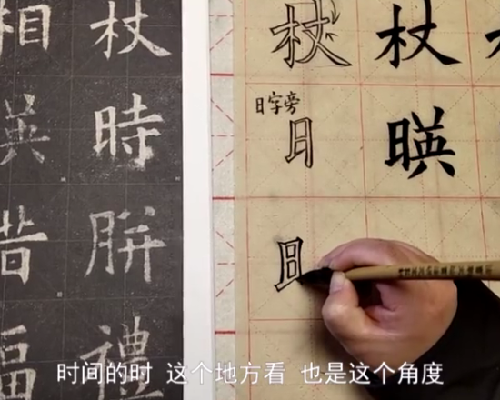 相 杖
英 時
昔 胼
禮
杖 杖
日字旁
日 暎
日
时间的时 这个地方看 也是这个角度